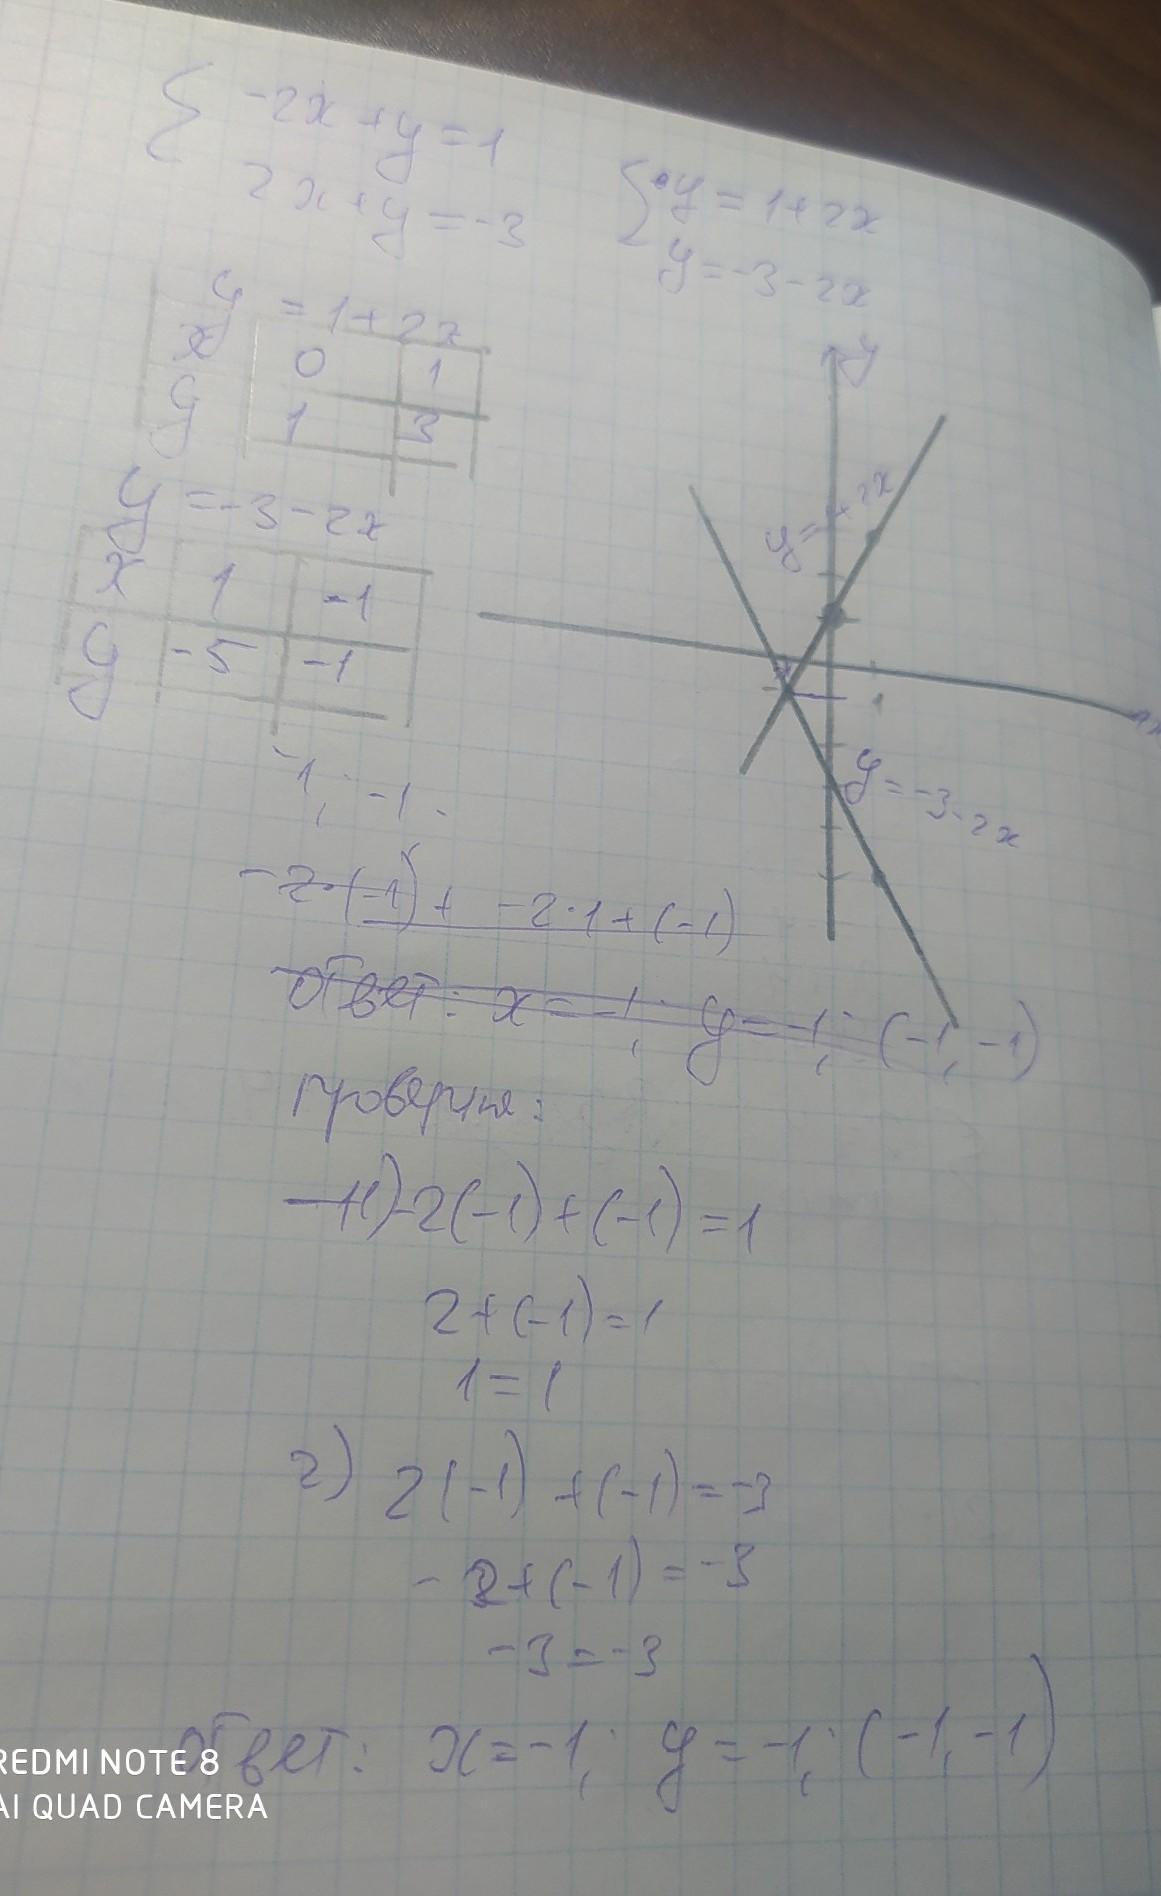 -2x+y=1
2x+y=-3
y=1+2x
y=-3-2x
y=1+2x
x 0 1
y 1 3
y=-3-2x
x 1 -1
y -5 -1
y
y=1+2x
1
x
y=-3-2x
-1; -1.
-2·(-1)+ -2·1+(-1)
Ответ: x=-1; y=-1; (-1,-1)
Проверка:
1)-2(-1)+(-1)=1
2+(-1)=1
1=1
2) 2(-1)+(-1)=-3
-2+(-1)=-3
-3=-3
Ответ: x=-1; y=-1; (-1,-1)
REDMI NOTE 8
AI QUAD CAMERA